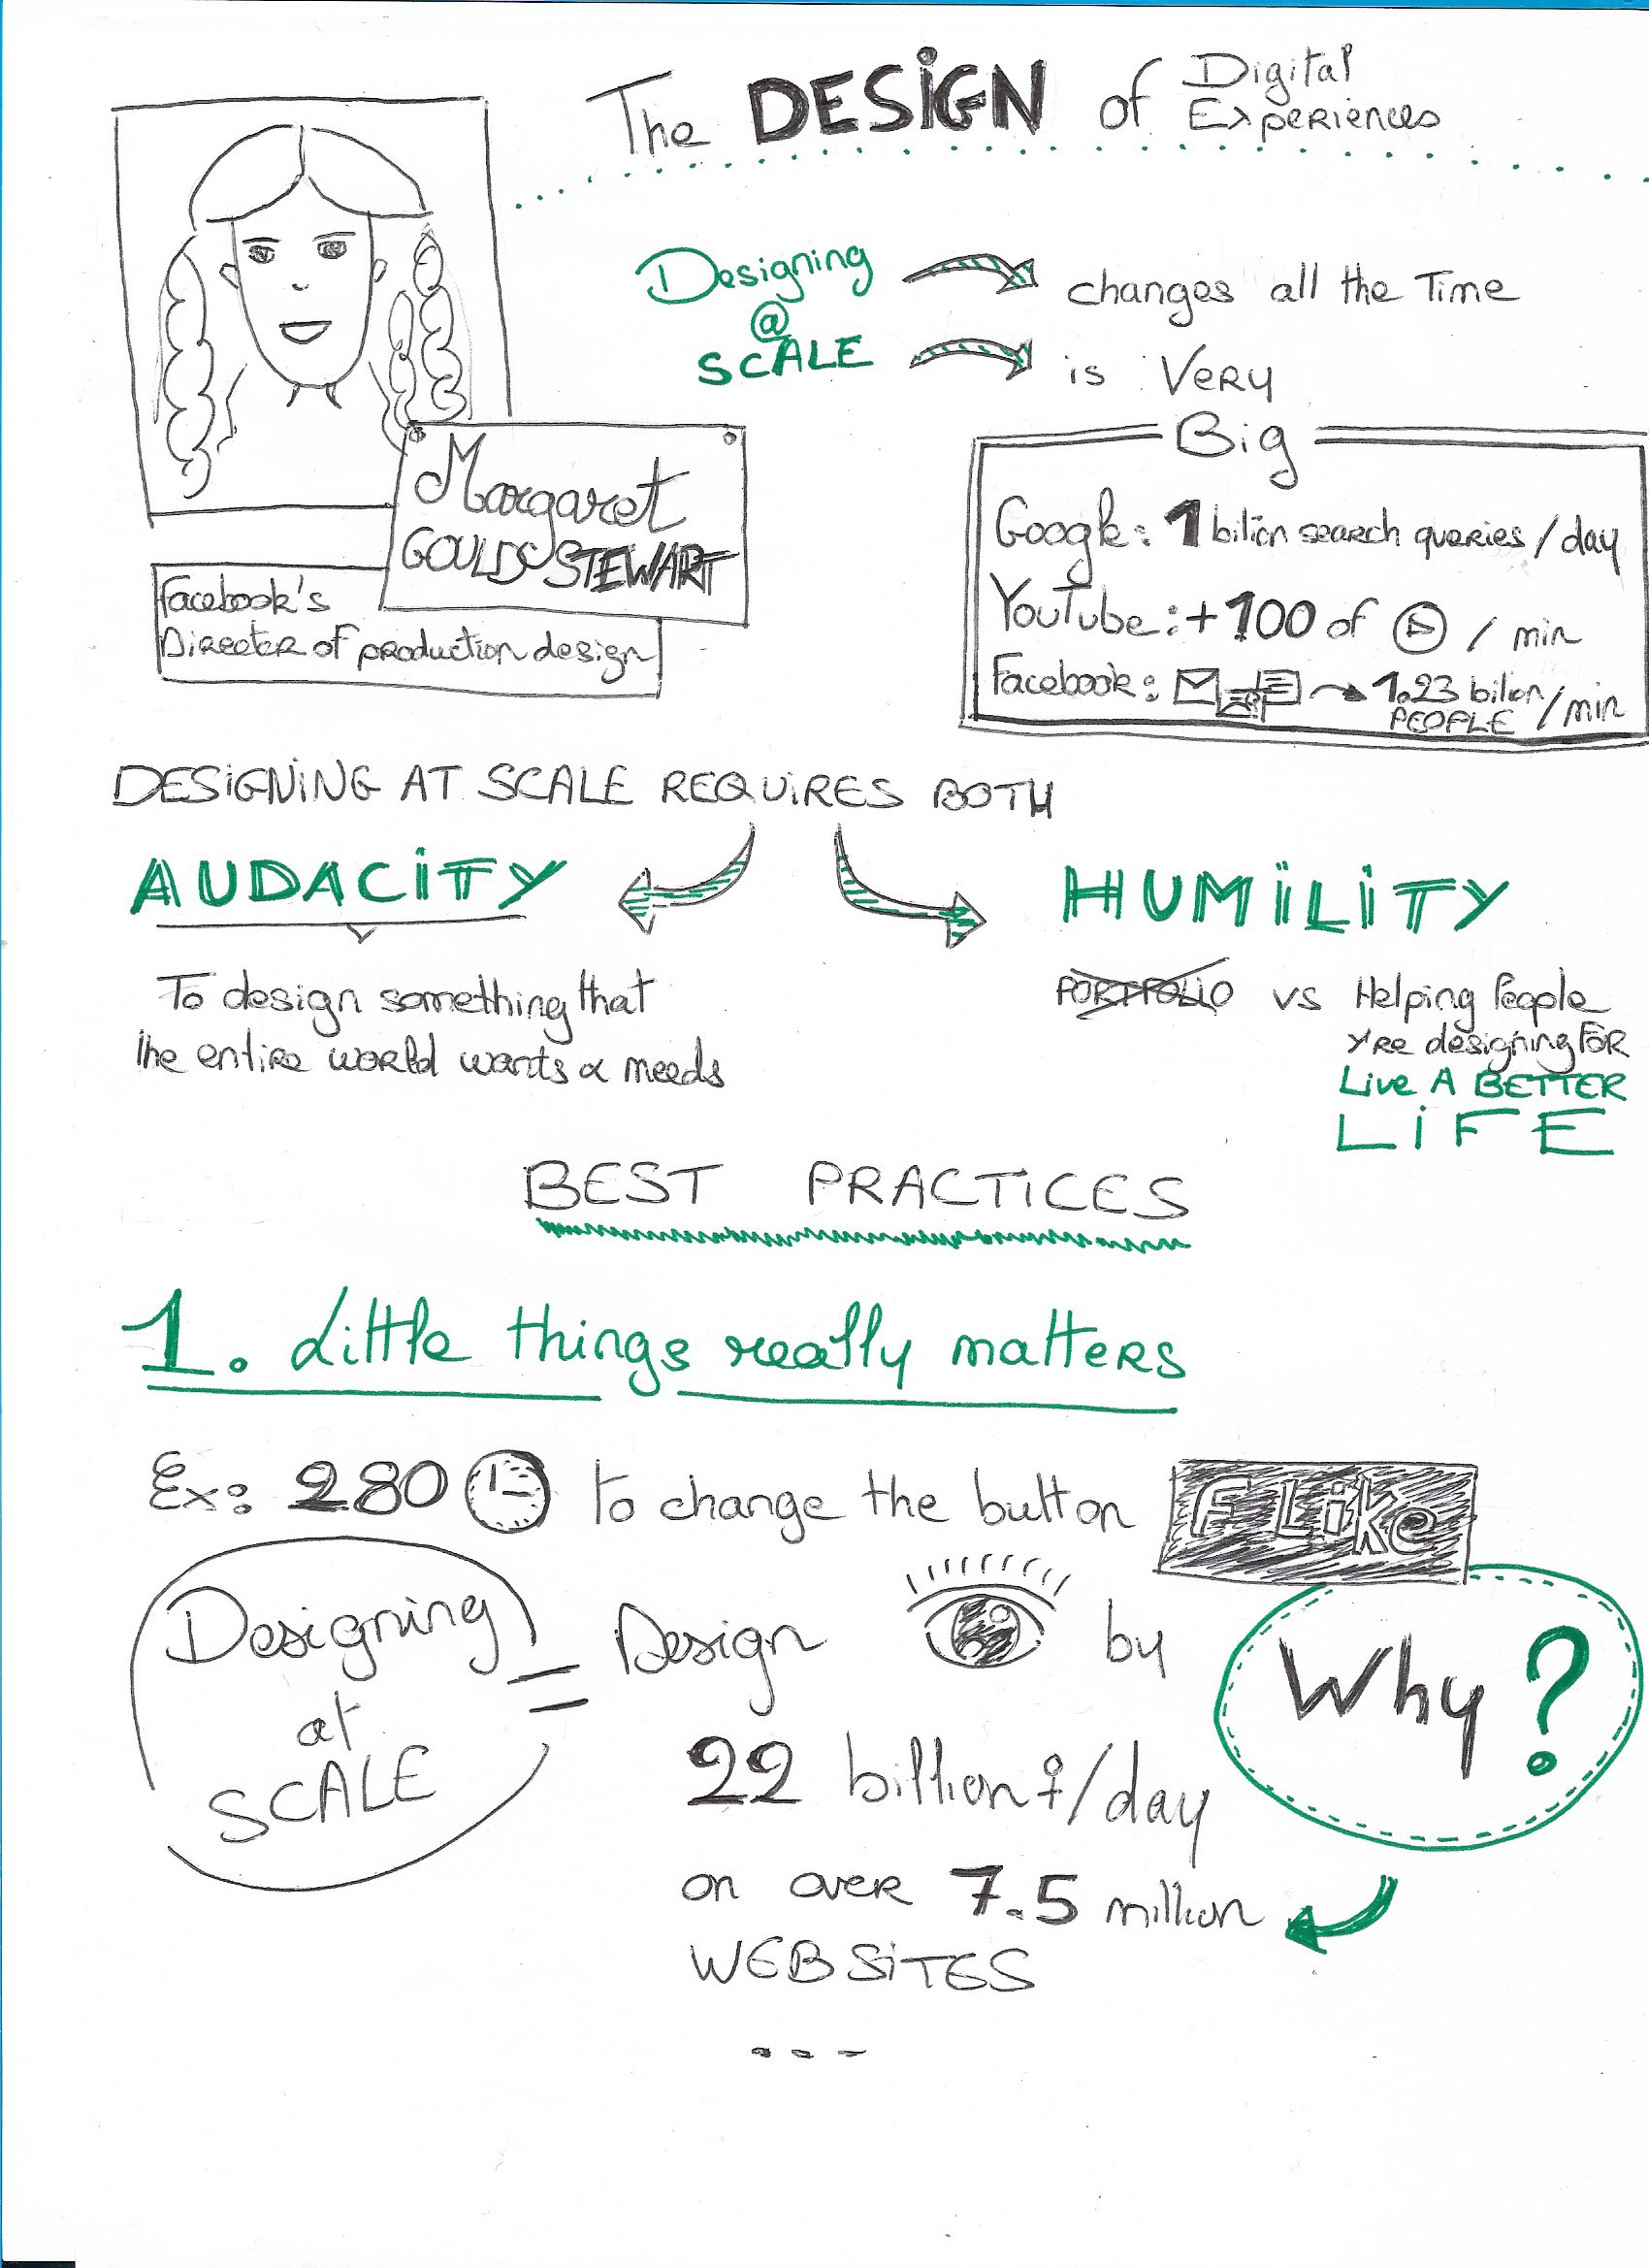 The DESiGN of Digital Experiences
Designing
@
SCALE
changes all the Time
is Very
Big
Margaret
GOULD STEWART
Facebook's
Director of production design
Google: 1 bilion search queries / day
YouTube: +100 of / min
Facebook: 1.23 bilion / min
PEOPLE
DESiGNiNG AT SCALE REQUiRES BOTH
AUDACiTY
HUMiLiTY
To design something that
the entire world wants & needs
PORTFOLIO vs Helping People
Y're designing FOR
Live A BETTER
LiFE
BEST PRACTiCES
1. Little things really matters
Ex: 280 to change the button F Like
Designing
at
SCALE
= Design by
22 billion /day
on over 7.5 million
WEBSiTES
Why ?
---